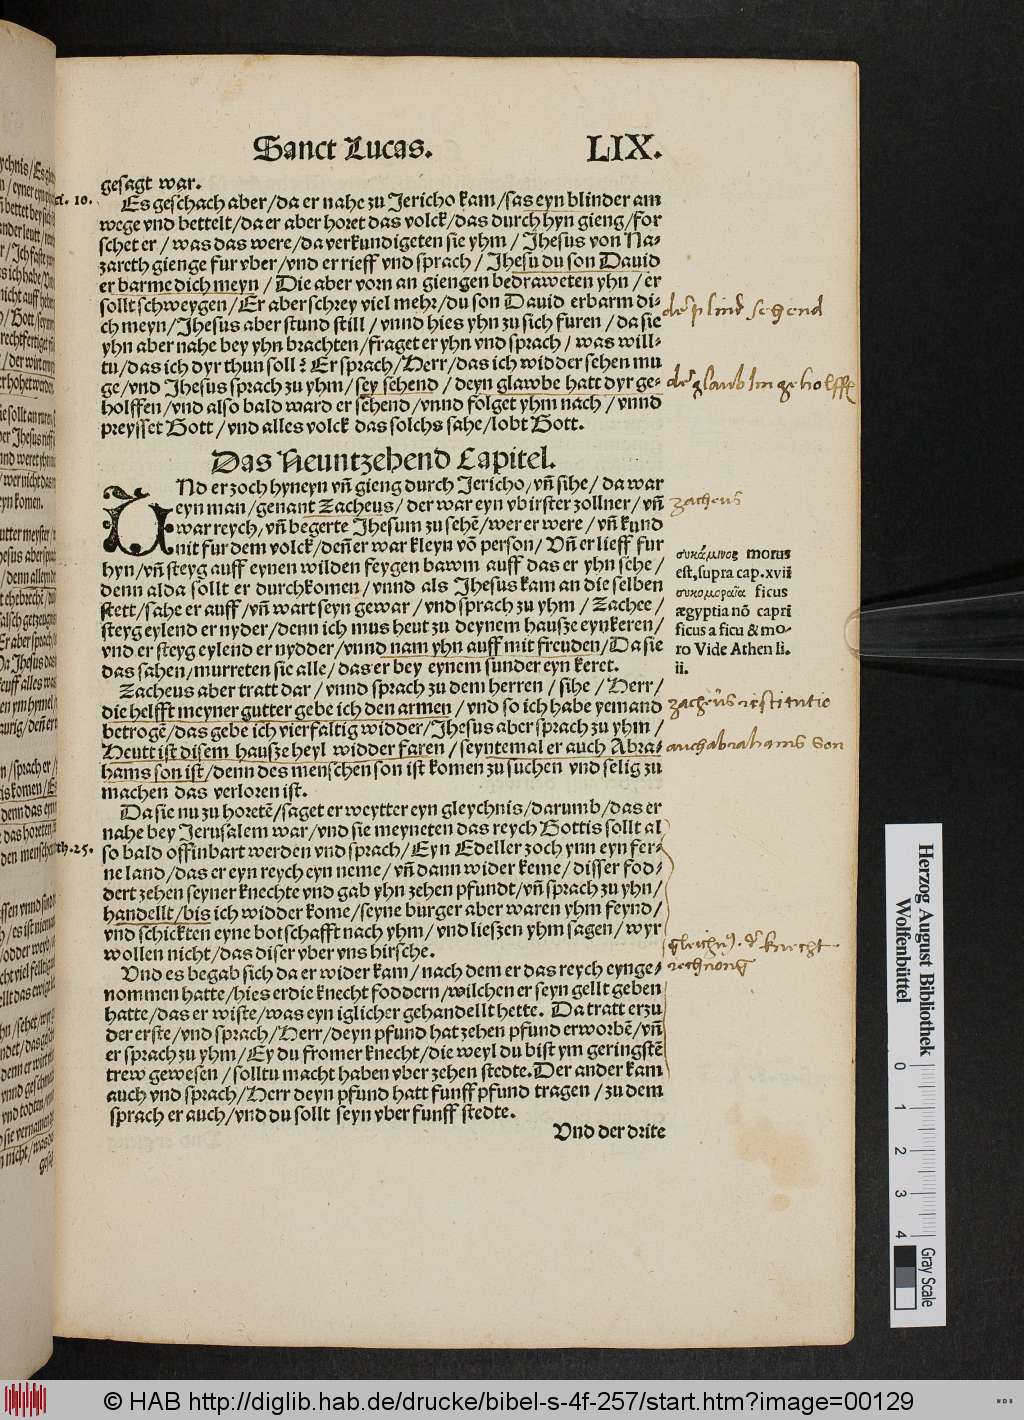 Sanct Lucas. LIX.
gesagt war.
Es geschach aber/da er nahe zu Jericho kam/sas eyn blinder am
wege vnd bettelt/da er aber horet das volck/das durch hyn gieng/for
schet er/was das were/da verkundigeten sie yhm/Jhesus von Na-
zareth gienge fur vber/vnd er rieff vnd sprach/Jhesu du son Dauid
er barme dich meyn/Die aber vorn an giengen bedraweten yhn/er
sollt schweygen/Er aber schrey viel mehr/du son Dauid erbarm di-
ch meyn/Jhesus aber stund still/vnnd hies yhn zu sich furen/da sie
yhn aber nahe bey yhn brachten/fraget er yhn vnd sprach/was will-
tu/das ich dyr thun soll? Er sprach/Herr/das ich widder sehen mu
ge/vnd Jhesus sprach zu yhm/sey sehend/deyn glawbe hatt dyr ge-
holffen/vnd also bald ward er sehend/vnnd folget yhm nach/vnnd
preysset Gott/vnd alles volck das solchs sahe/lobt Gott.
Das Neuntzehend Capitel.
VNd er zoch hyneyn vñ gieng durch Jericho/vñ sihe/da war
eyn man/genant Zacheus/der war eyn vbirster zollner/vñ
war reych/vñ begerte Jhesum zu sehẽ/wer er were/vñ kund
nit fur dem volck/deñ er war kleyn võ person/Vñ er lieff fur
hyn/vñ steyg auff eynen wilden feygen bawm auff das er yhn sehe/
denn alda sollt er durchkomen/vnnd als Jhesus kam an die selben
stett/sahe er auff/vñ wart seyn gewar/vnd sprach zu yhm/Zachee/
steyg eylend er nyder/denn ich mus heut zu deynem hausze eynkeren/
vnd er steyg eylend er nydder/vnnd nam yhn auff mit freuden/Da sie
das sahen/murreten sie alle/das er bey eynem sunder eyn keret.
Zacheus aber tratt dar/vnnd sprach zu dem herren/sihe/Herr/
die helfft meyner gutter gebe ich den armen/vnd so ich habe yemand
betrogẽ/das gebe ich vierfaltig widder/Jhesus aber sprach zu yhm/
Heutt ist disem hausze heyl widder faren/seyntemal er auch Abra-
hams son ist/denn des menschen son ist komen zu suchen vnd selig zu
machen das verloren ist.
Da sie nu zu horetẽ/saget er weytter eyn gleychnis/darumb/das er
nahe bey Jerusalem war/vnd sie meyneten das reych Gottis sollt al
so bald offinbart werden vnd sprach/Eyn Edeller zoch ynn eyn fer-
ne land/das er eyn reych eyn neme/vñ dann wider keme/disser fod-
dert zehen seyner knechte vnd gab yhn zehen pfundt/vñ sprach zu yhn/
handellt/bis ich widder kome/seyne burger aber waren yhm feynd/
vnd schickten eyne botschafft nach yhm/vnd lieszen yhm sagen/wyr
wollen nicht/das diser vber vns hirsche.
Vnd es begab sich da er wider kam/nach dem er das reych eynge-
nommen hatte/hies er die knecht foddern/wilchen er seyn gellt geben
hatte/das er wiste/was eyn iglicher gehandellt hette. Da tratt erzu
der erste/vnd sprach/Herr/deyn pfund hat zehen pfund erworbẽ/vñ
er sprach zu yhm/Ey du fromer knecht/die weyl du bist ym geringstẽ
trew gewesen/solltu macht haben vber zehen stedte. Der ander kam
auch vnd sprach/Herr deyn pfund hatt funff pfund tragen/zu dem
sprach er auch/vnd du sollt seyn vber funff stedte.
Vnd der drite
10.
th. 25.
der plind sehend
der glaub im geholffen
zacheus
συκάμινος morus
est, supra cap. xvii
συκομοραία ficus
ægyptia nõ capri
ficus a ficu & mo-
ro Vide Athen li.
ii.
zacheus restitutio
auch abrahams son
gleichn9. d knecht
rechnong
Herzog August Bibliothek
Wolfenbüttel
0 1 2 3 4
Gray Scale
© HAB http://diglib.hab.de/drucke/bibel-s-4f-257/start.htm?image=00129